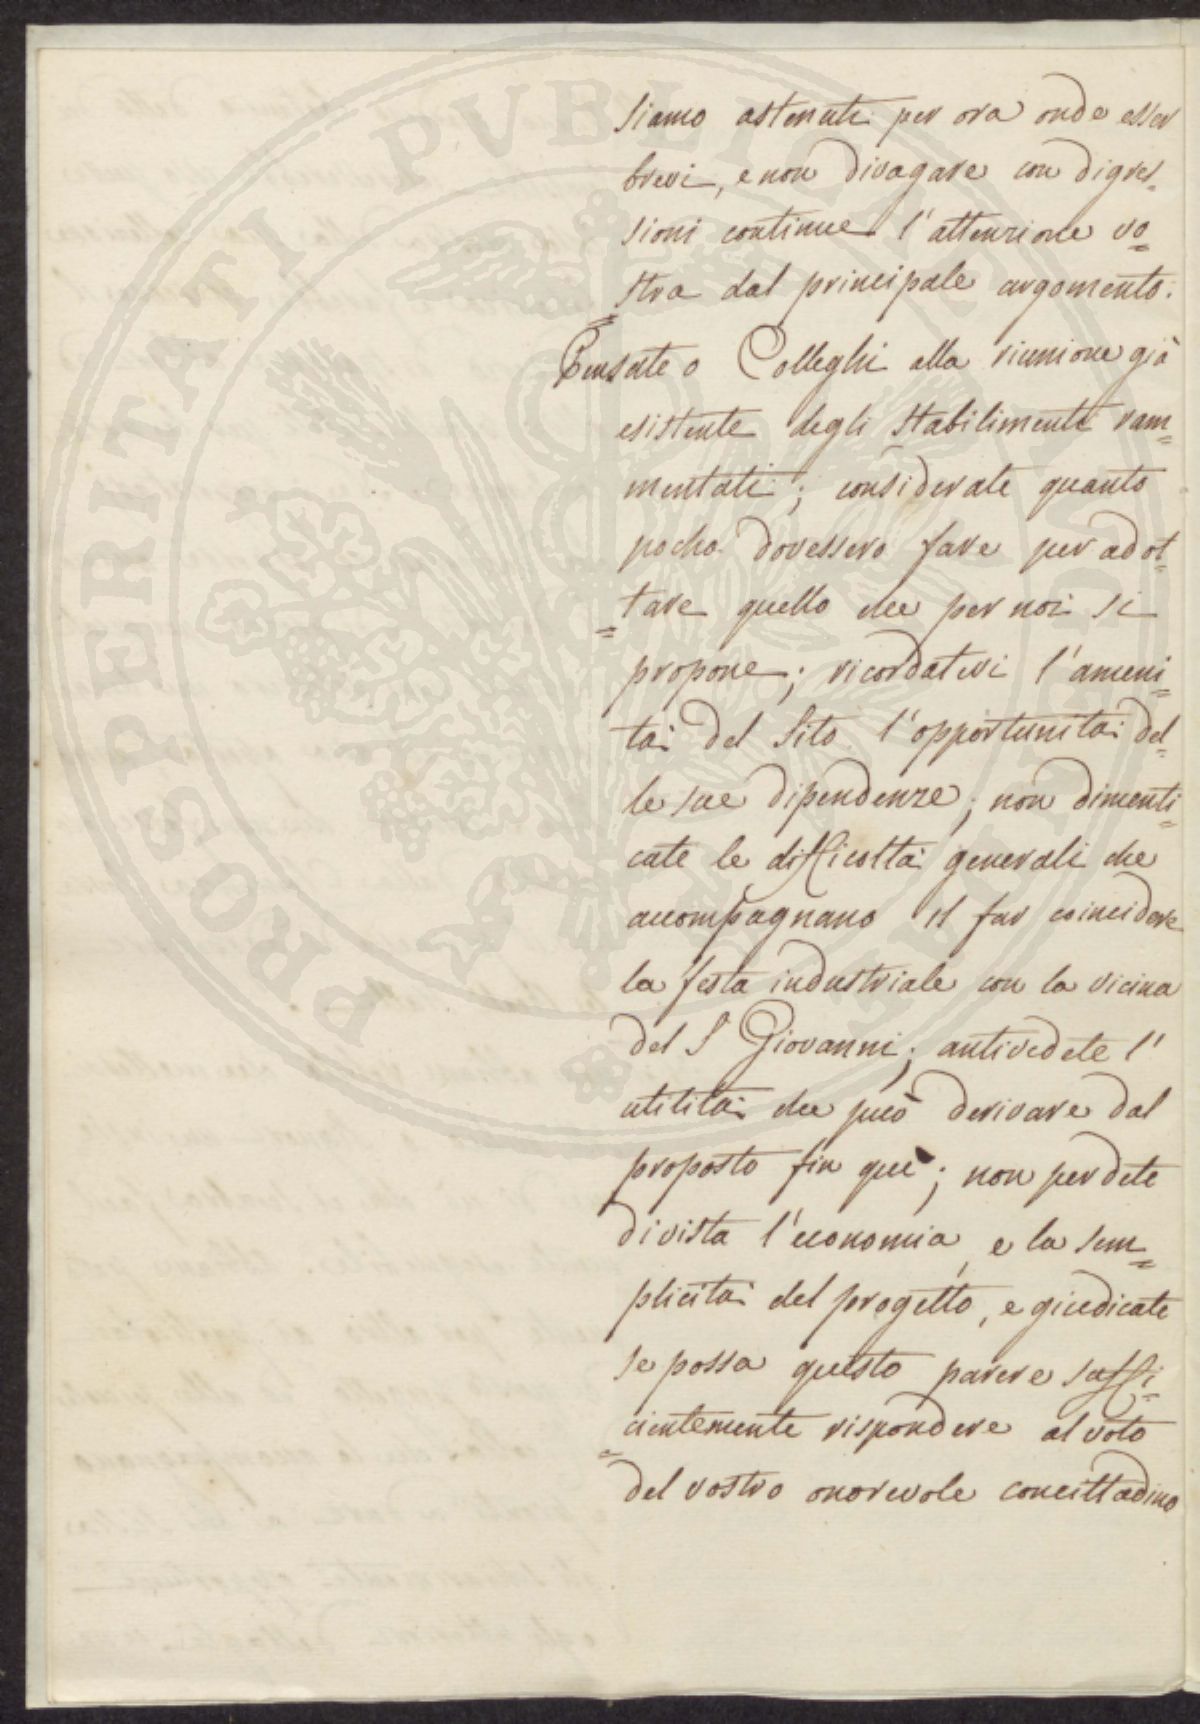 siamo astenuti per ora onde esser
brevi, e non divagare con digres=
sioni continue l'attenzione vo=
=stra dal principale argomento.
Pensate o Colleghi alla riunione già
esistente degli Stabilimenti ram=
mentati; considerate quanto
pocho dovessero fare per adot=
=tare quello che per noi si
propone; ricordatevi l'ameni=
tà del Sito l'opportunità del=
le sue dipendenze; non dimenti=
cate le difficoltà generali che
accompagnano il far coincidere
la festa industriale con la vicina
del S Giovanni; antivedete l'
utilità che può derivare dal
proposto fin quì; non perdete
divista l'economia, e la sem=
plicità del progetto, e giudicate
se possa questo parere suffi=
=cientemente rispondere al voto
del vostro onorevole concittadino
PROSPERITATI PVBLICAE AVGENDAE